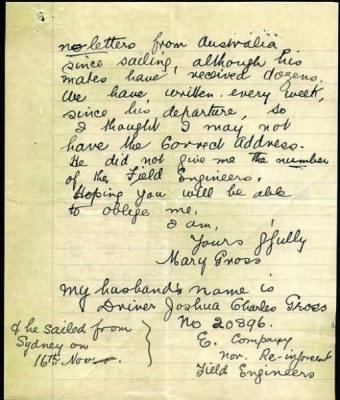 no letters from Australia
since sailing, although his
mates have received dozens.
We have written every week,
since his departure, so
I thought I may not
have the correct address.
He did not give me the number
of the Field Engineers.
Hoping you will be able
to oblige me,
I am,
Yours ffully
Mary Gross
My husband's name is
Driver Joshua Charles Gross
No 20896.
& he sailed from
Sydney on
16th Nov.
E. Company
Nov. Re-inforcemt
Field Engineers